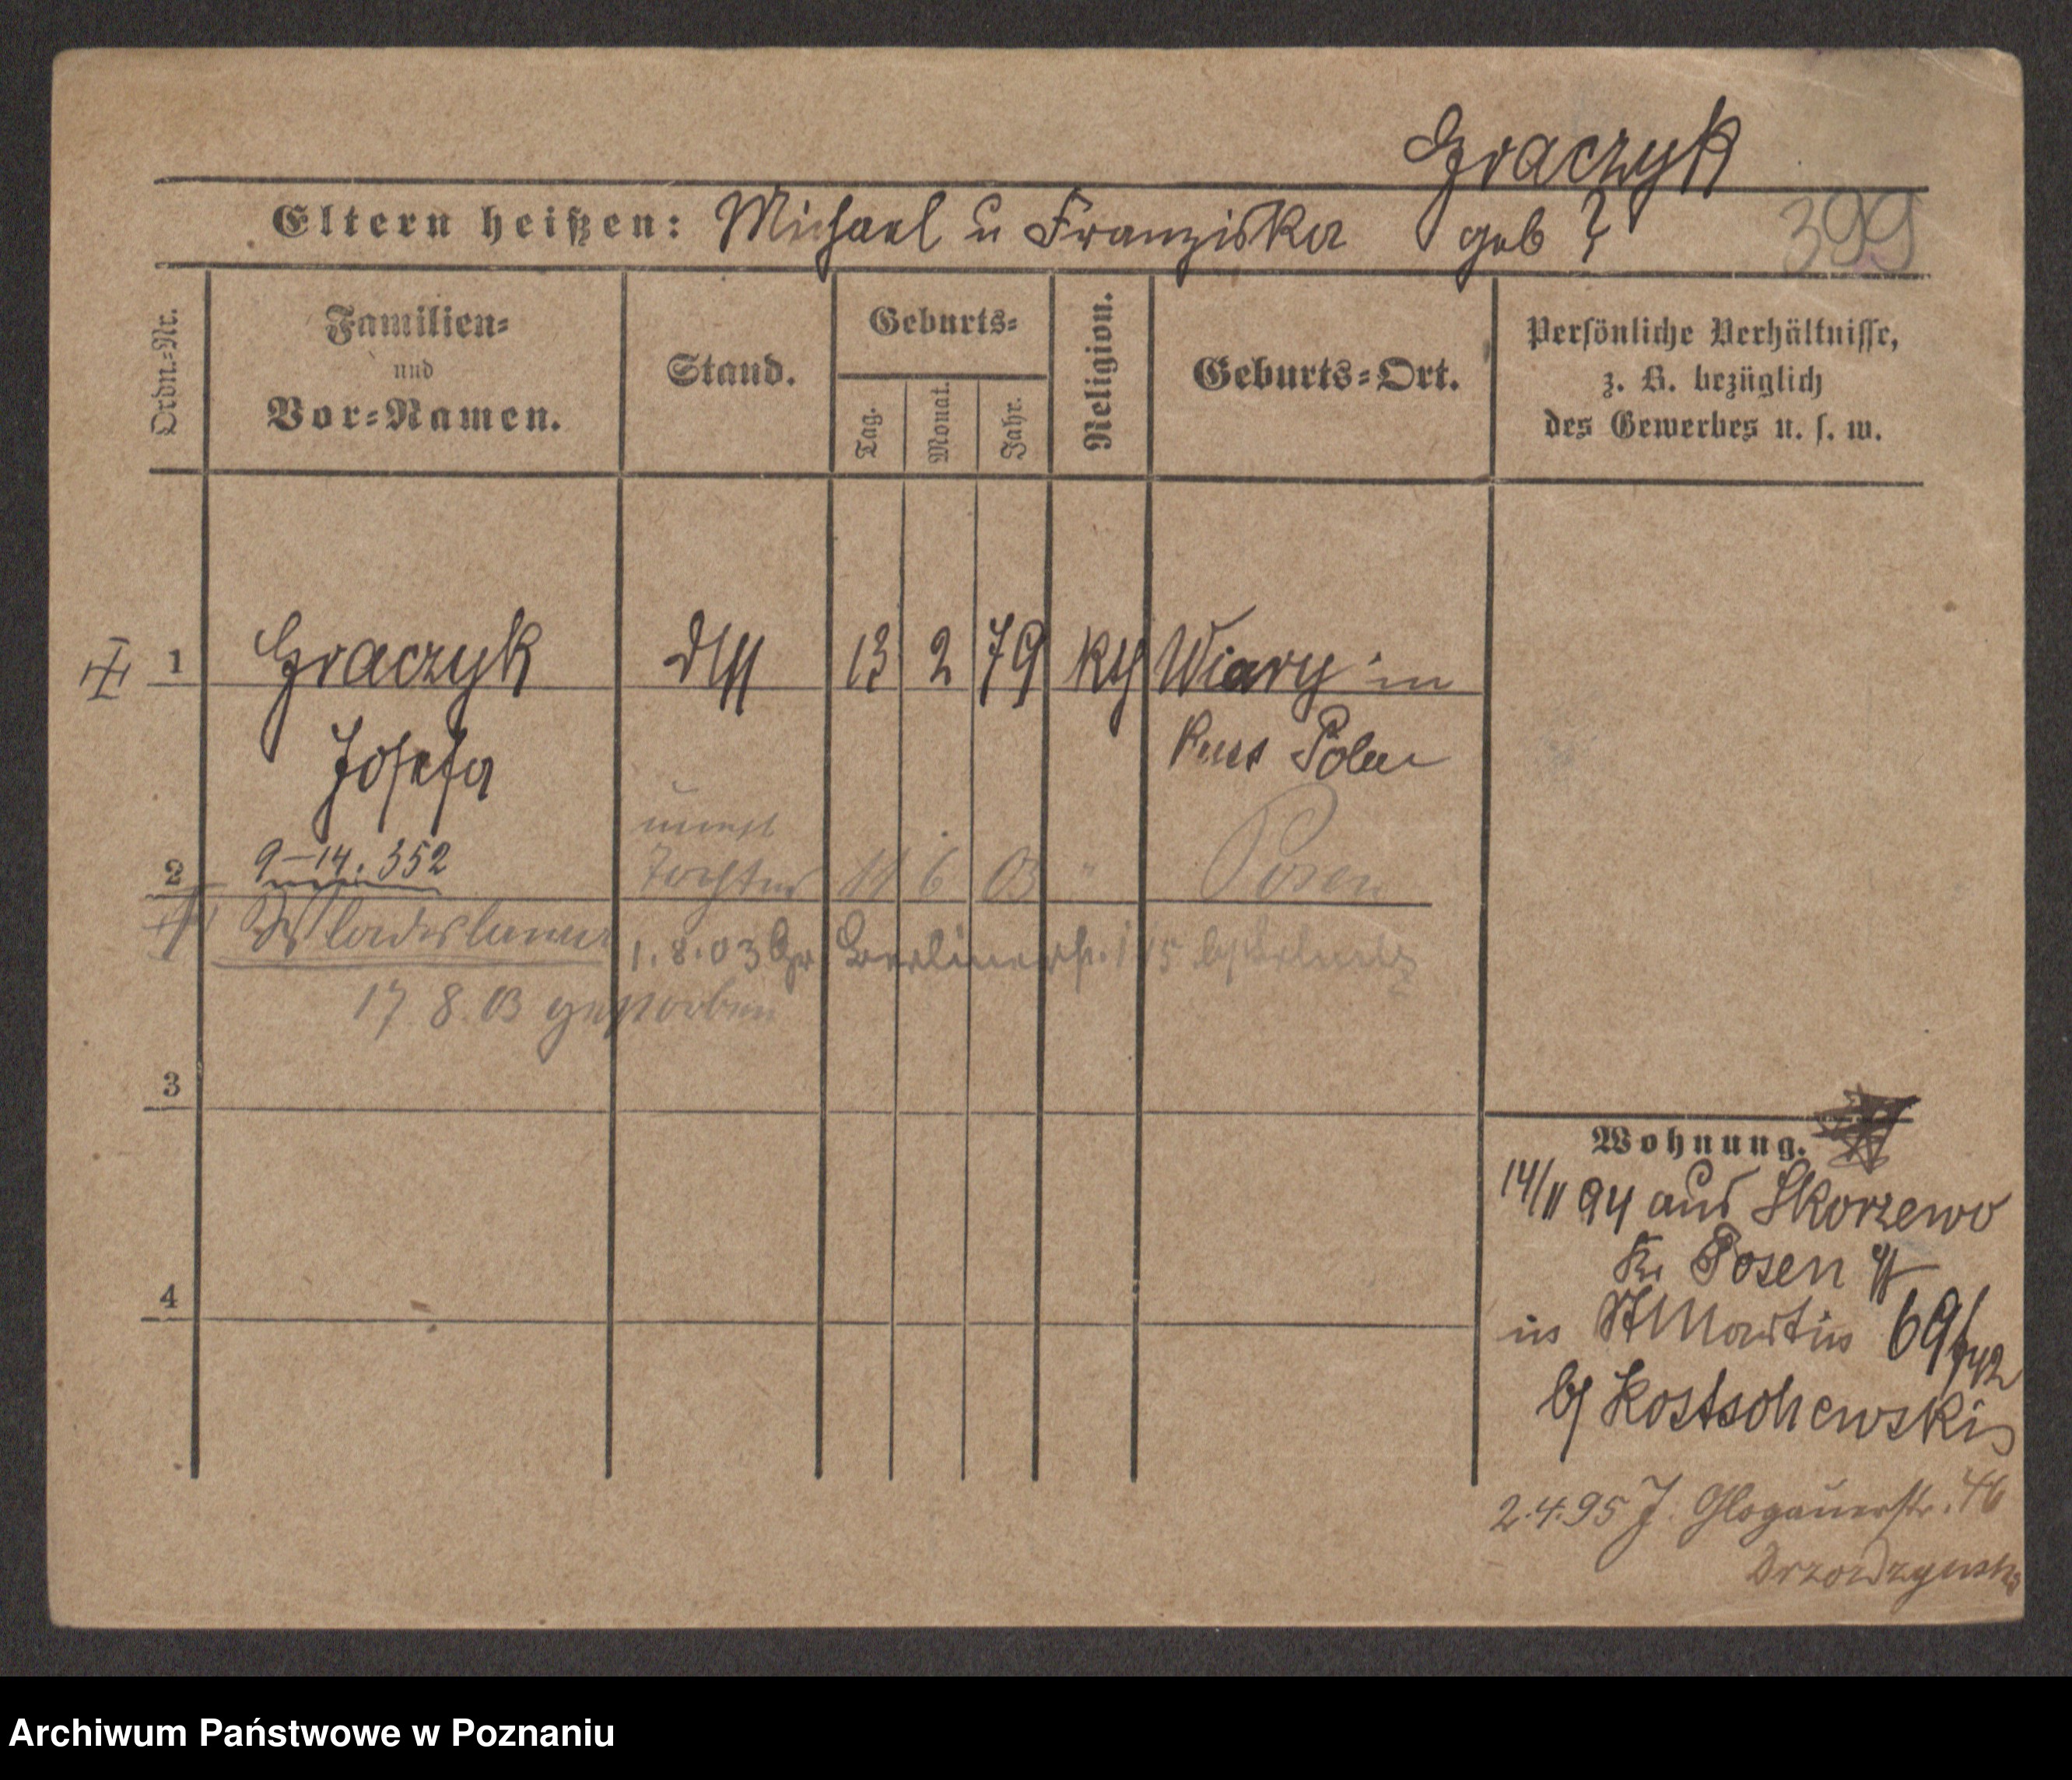 Graczyk
Eltern heißen: Michael u Franziska geb ?
399
Ordn.-Nr.
Familien-
und
Vor-Namen.
Stand.
Geburts-
Tag.
Monat.
Jahr.
Religion.
Geburts-Ort.
Persönliche Verhältnisse,
z. B. bezüglich
des Gewerbes u. s. w.
1 Graczyk 13 2 79 kth Wiary in
Josefa Russ Polen
unehl
2 9-14.352 Tochter 11 6 03 " Posen
Wladislawa 1.8.03 Gr Berlinerstr.
17.8.03 gestorben
3
4
Wohnung.
14/11 94 aus Skorzewo
Kr. Posen
in St Martin 69
b/ Kostschewski
2.4.95 J. Glogauerstr. 46
Archiwum Państwowe w Poznaniu